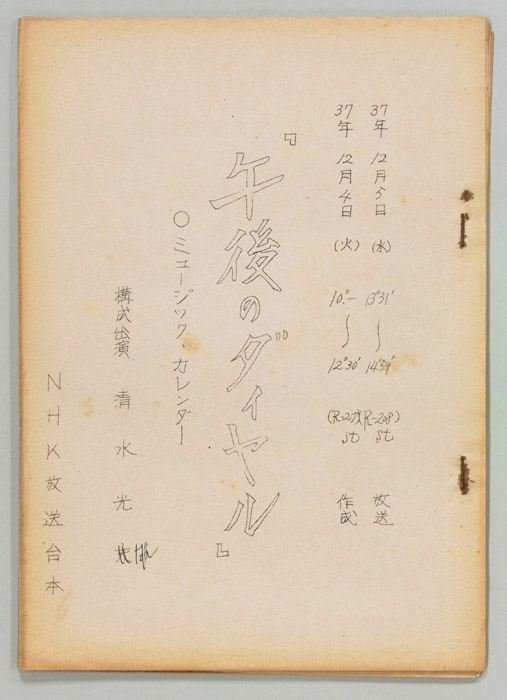 37年 12月5日 (水) 13°31′〜14°59′ (R-208)st 放送
37年 12月4日 (火) 10°―〜12°30′ st 作成
『午後のダイヤル』
○ミュージック・カレンダー
構成出演 清水光
NHK放送台本